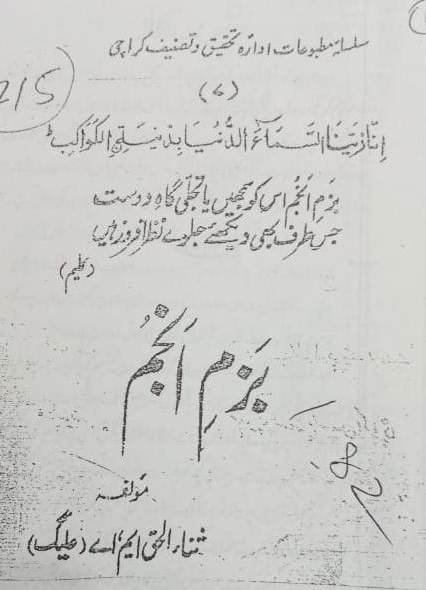 سلسلۂ مطبوعات ادارۂ تحقیق و تصنیف کراچی
(۷)
215
اِنَّا زَيَّنَّا السَّمَآءَ الدُّنْيَا بِزِيْنَةِ ۨ الْكَوَاكِبِ ؕ
بزمِ انجم اس کو سمجھیں یا تجلّی گاہِ دوست
جس طرف بھی دیکھئے جلوے نظر افروز ہیں
بَزمِ اَنجُم
مؤلفہ
ثناء الحق ایم، اے (علیگ)